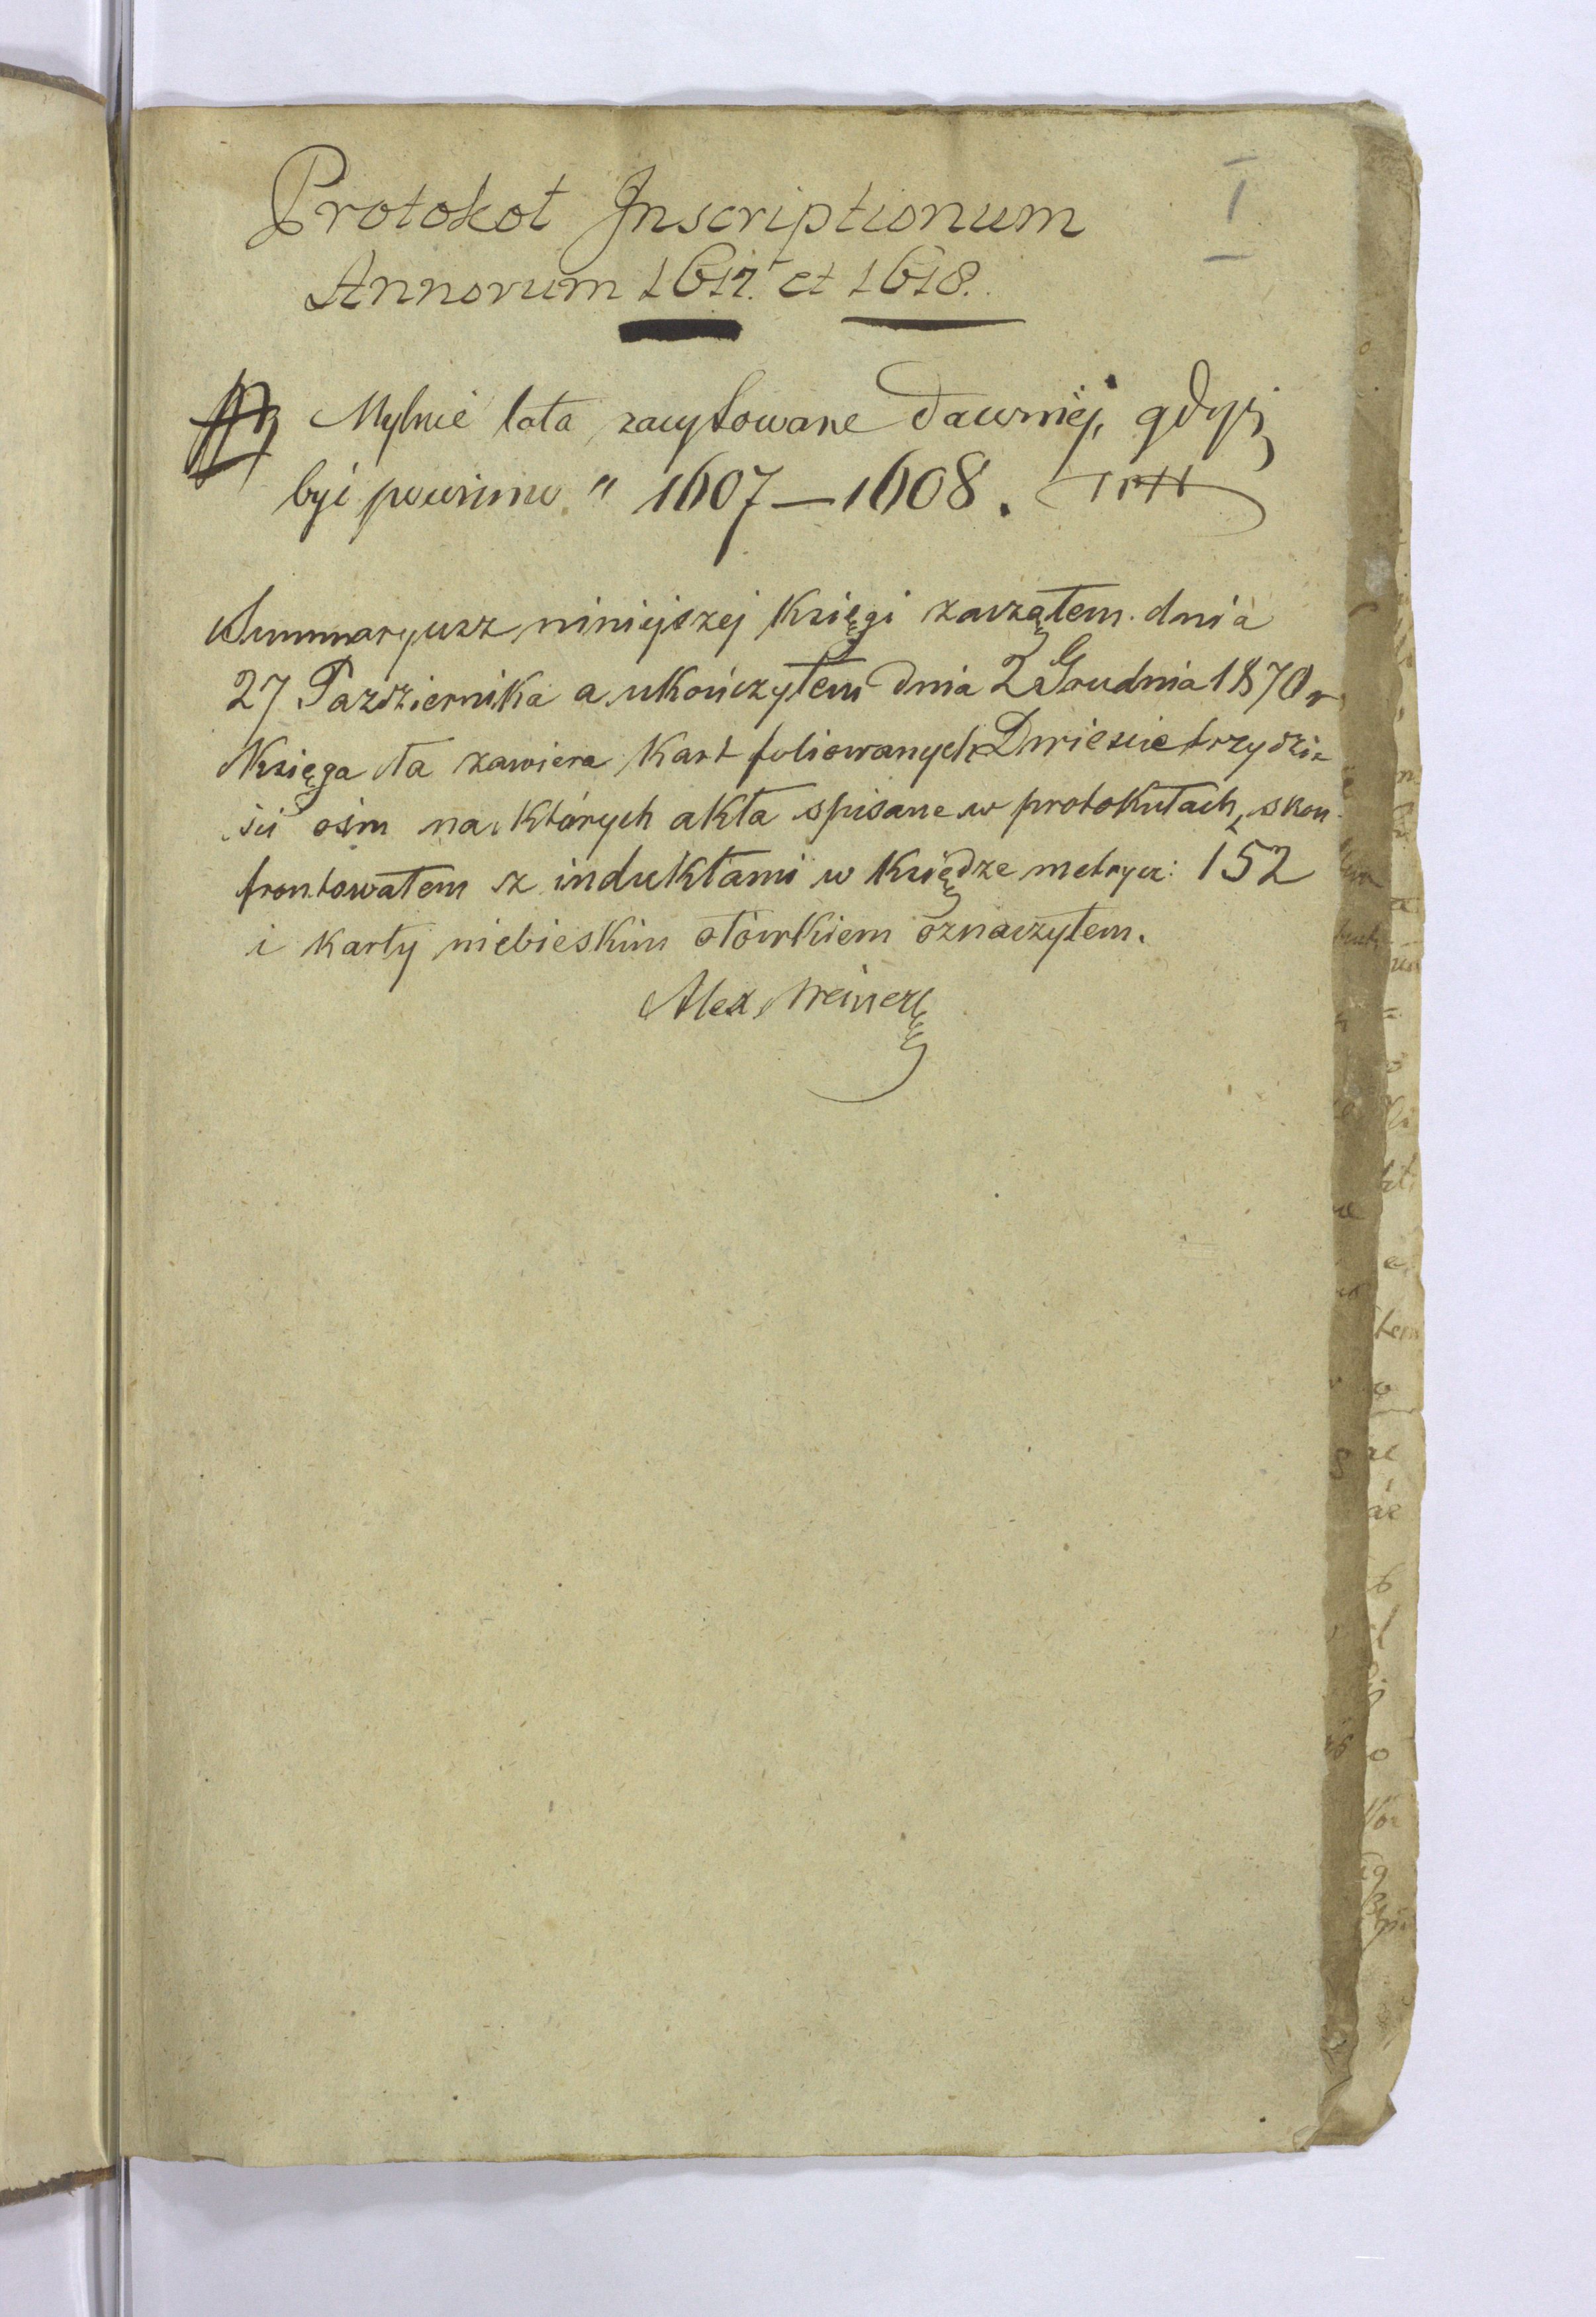 I
Protokoł Inscriptionum
Annorum 1617. et 1618.
Mylnie lata zacytowane dawniej, gdyż
być powinno " 1607 — 1608.
Summaryusz niniejszej Księgi zacząłem dnia
27 Pazdziernika a ukończyłem dnia 2 Grudnia 1870 r
Księga ta zawiera Kart foliowanych Dwieście trzydzie
ści ośm na których akta spisane w protokułach, skon
frontowałem z induktami w Księdze metrycz: 152
i karty niebieskim ołówkiem oznaczyłem.
Alex